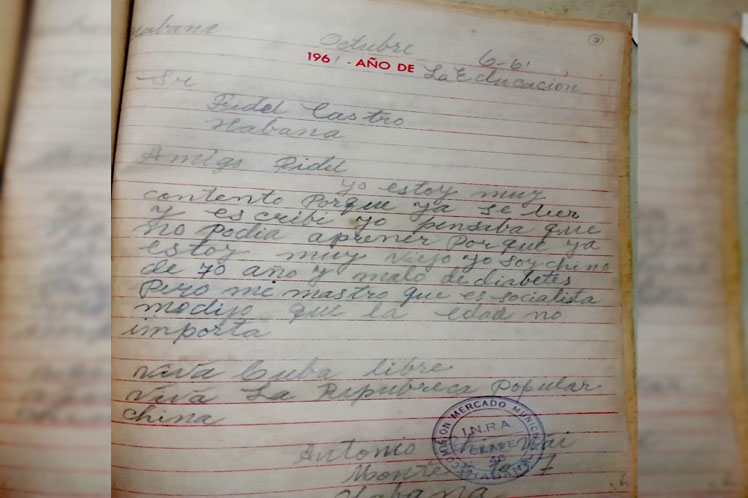 Habana Octubre 6-61
1961 - AÑO DE La Educación
Sr
Fidel Castro
Habana
Amigo Fidel
yo estoy muy
contento Porque ya se leer
y escribi yo pensaba que
no podia aprener Porque ya
estoy muy viejo yo soy chino
de 70 año y malo de diabetes
Pero mi mastro que es socialida
modijo que la edad no
importa
viva Cuba libre
viva La Repubreca Popular
china
Antonio
Monte
Habana
MERCADO
I.N.R.A